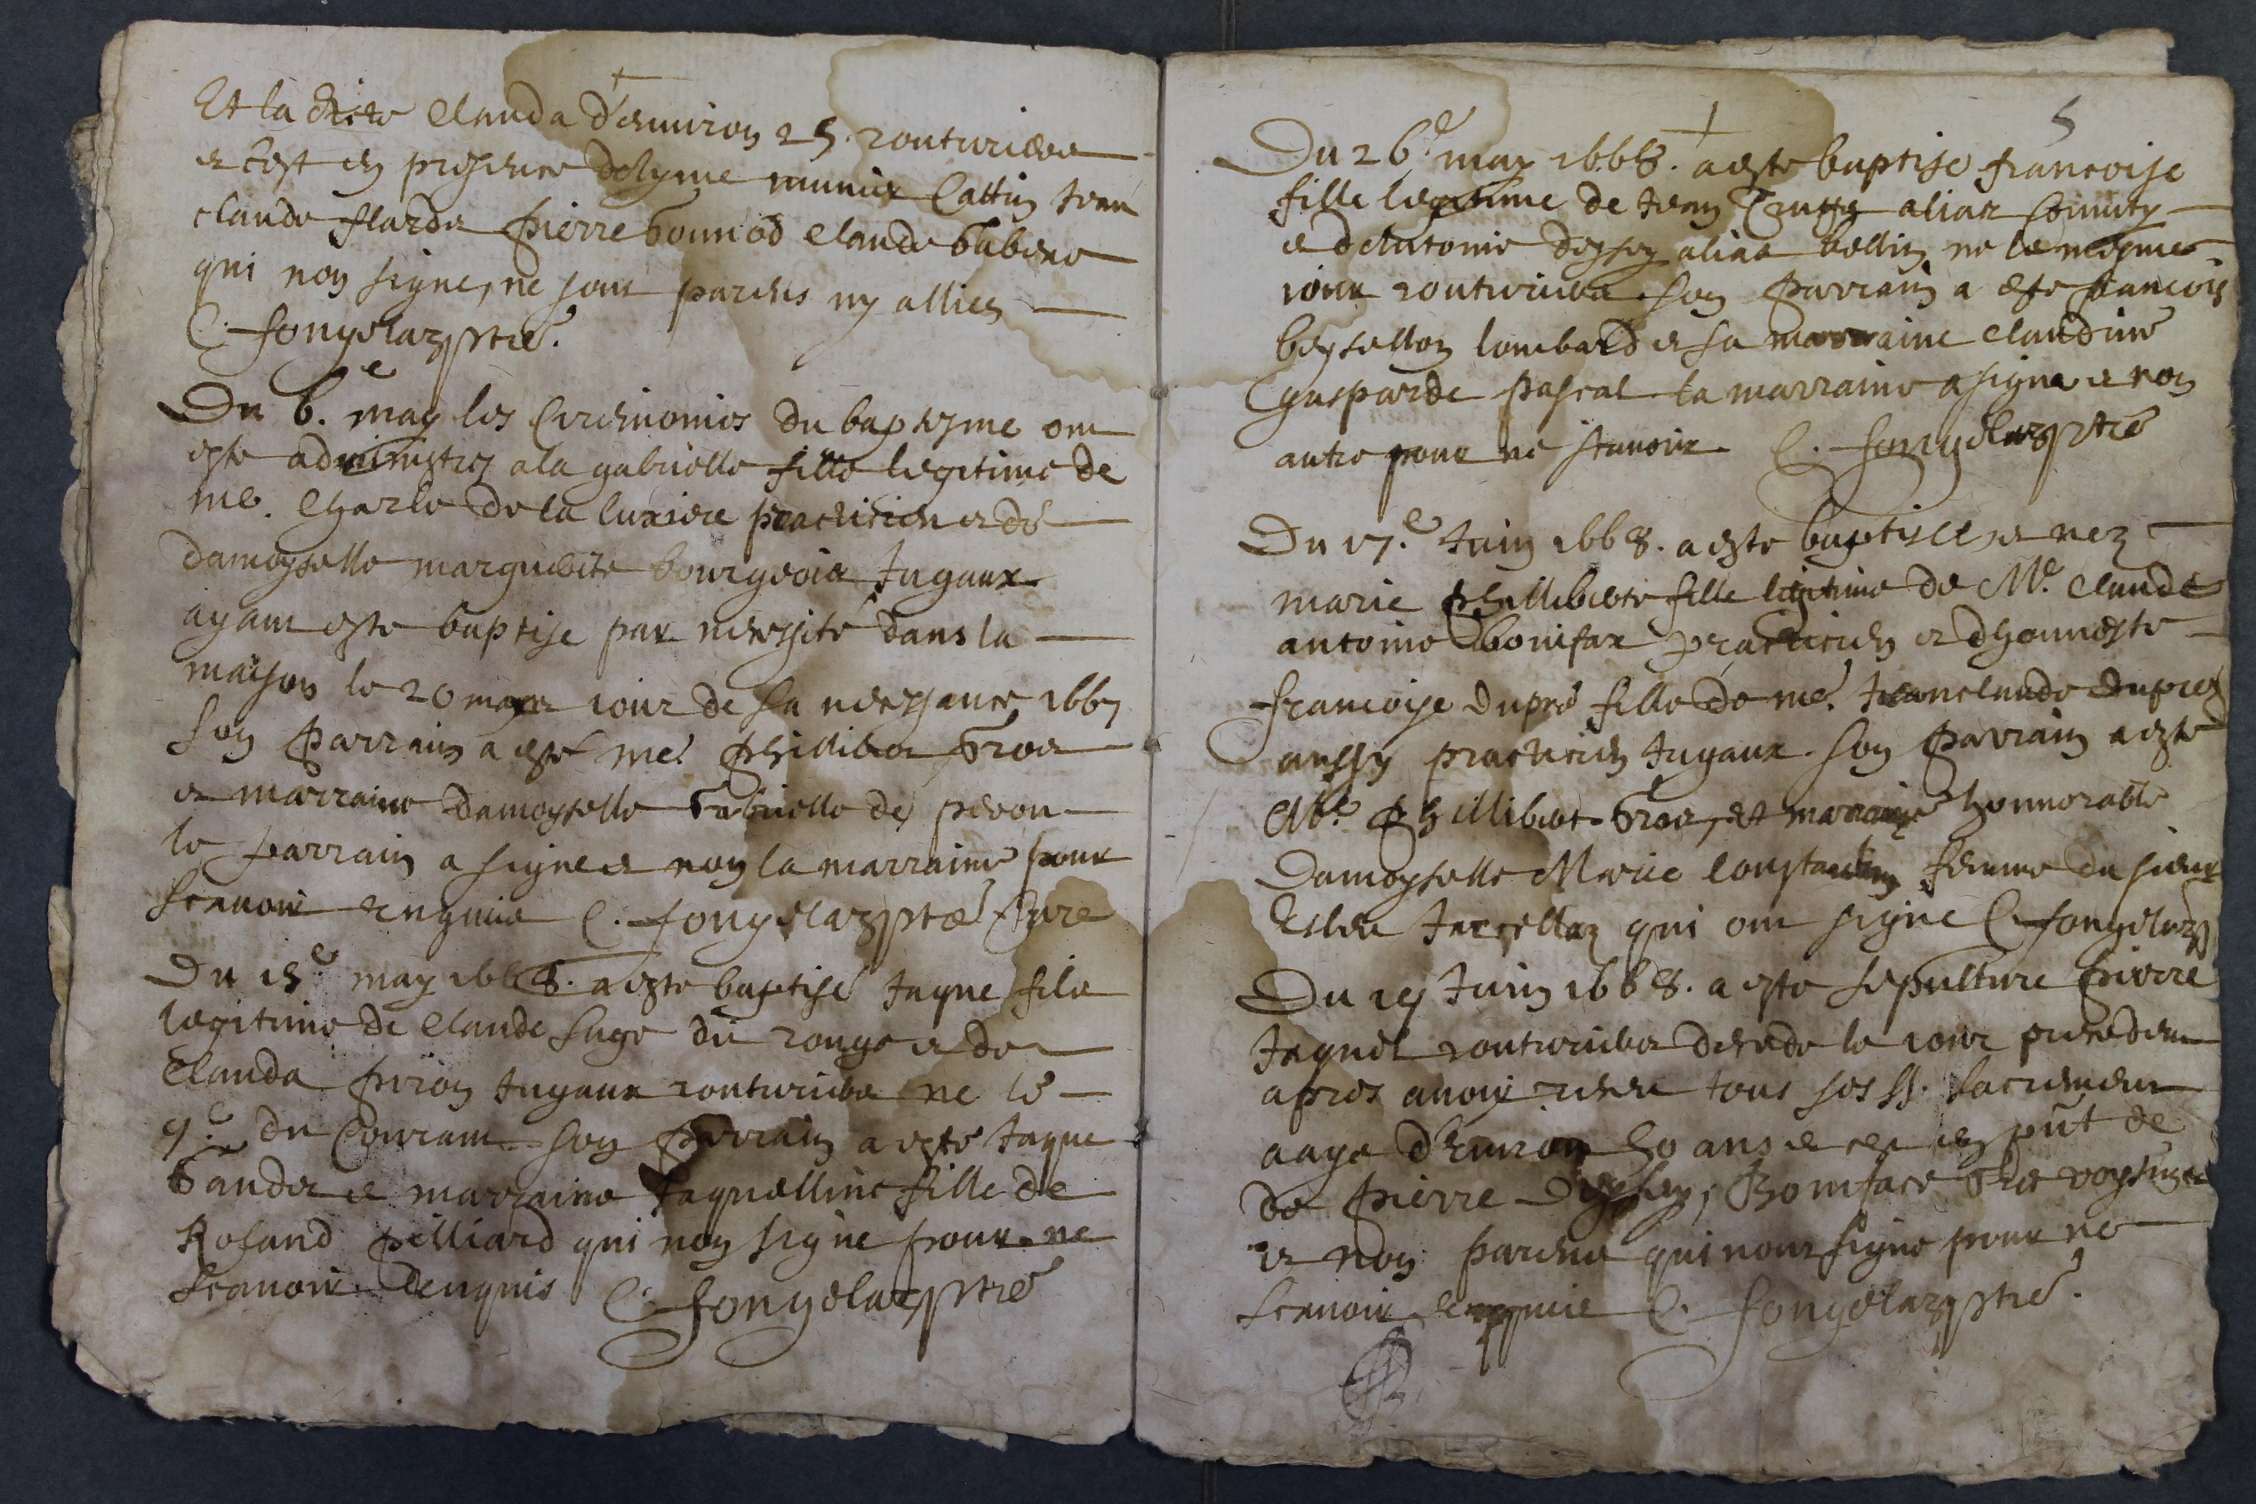 Et la dicte Clauda d'environ 25. routuriere
et cest en presence delyme munier Cattin Jean
claude flardet pierre bonnod Claude
qui non signe, ne sont parens ny allies
C. fongelaz ptre.
Du 6.e may les Ceremonies du baptesme ont
este administrez a la gabrielle fille legitime de
me. Charle de la luxiere practicien et de
damoyselle marguerite bourgeois Jugaux
ayant este baptise par necessité dans la
maison le 20 mars iour de sa nessance 1667
Son parrain a esté me. phillibert gros
et marraine damoyselle Gabrielle de peron
le parrain a signe et non la marraine pour
scavoir enquise C. fongelaz ptre Cure
Du 15.e may 1668. a este baptisé Jaque filz
legitime de Claude Suge du rouge et de
Clauda piron Jugaux routuriers ne le
9.e du Courant son parrain a esté Jaque
Gandet et marraine Jaquelline fille de
Roland pilliard qui non signe pour ne
scavoir denquis C. fongelaz ptre
5
Du 26.e may 1668. a este baptise francoise
fille legitime de Jean alias
et detutonie dessey alias bellin ne le mesme
iour routuriers son parrain a este francois
beysellon lombard et sa marraine claudine
gasparde pascal la marraine a signe et non
autre pour ne scavoir C. fongelaz ptre
Du 17.e Juin 1668. a este baptisee et nez
marie philliberte fille legitime de Me. Claude
antoine bonifax practicien et dhonneste
francoise dupré fille de me. Jeanclaude duprez
aussy practicien Jugaux. son parrain a este
Me. phillibert gros, et marraine honnorable
Damoyselle Marie Constantin femme du sieur
Esleu Jarcellaz qui ont signé C. fongelaz
Du 19 Juin 1668. a este sepulture pierre
Jaquet routurier decede le iour precedent
apres avoir receu tous ses ss. sacrement
aage d'Environ 50 ans et ce en pnt de
de pierre dessey, Boniface voysins
et non parens qui nont signe pour ne
scavoir enquis C. fongelaz ptre.